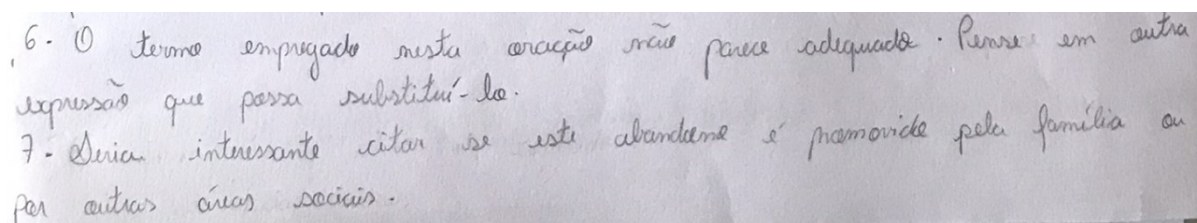 6- O termo empregado nesta oração não parece adequado. Pense em outra
expressão que possa substituí-lo.
7- Seria interessante citar se este abandono é promovido pela família ou
por outras áreas sociais.